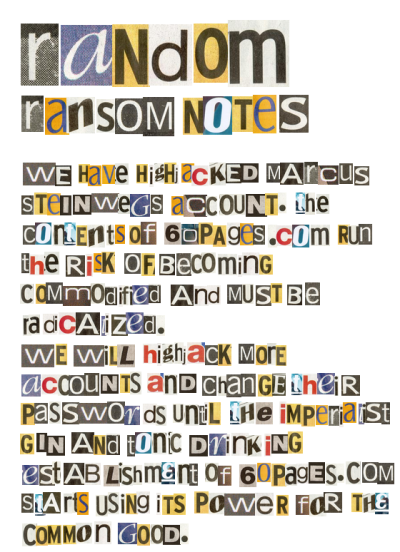 random
ransom NOTES
WE HAve HigHjacKED MArcus
STEINWeGS aCCOUNT. the
cOntEntsof 60PAges.com Run
the RisK OF BEcoming
COMModified And MUST Be
radiCAlized.
WE WiLL highjacK MORE
accOUNTS anD chanGE theiR
PassWOrds UntiL tHe iMperialist
GIN ANd tOnic DrinKiNG
estABLishmEnt Of 60PagES.COM
stArtS USiNg iTS POWeR foR THE
COMMOn GOOD.